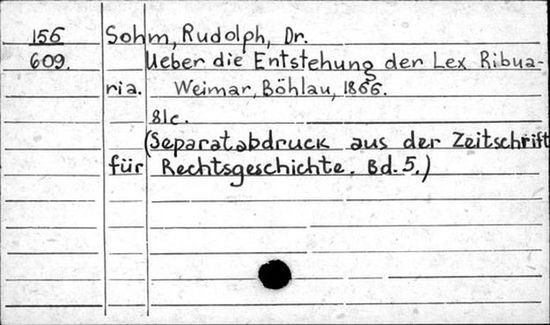 156 Sohm, Rudolph, Dr.
609. Ueber die Entstehung der Lex Ribua-
ria. Weimar, Böhlau, 1866.
8lc.
(Separatabdruck aus der Zeitschrift
für Rechtsgeschichte. Bd. 5.)